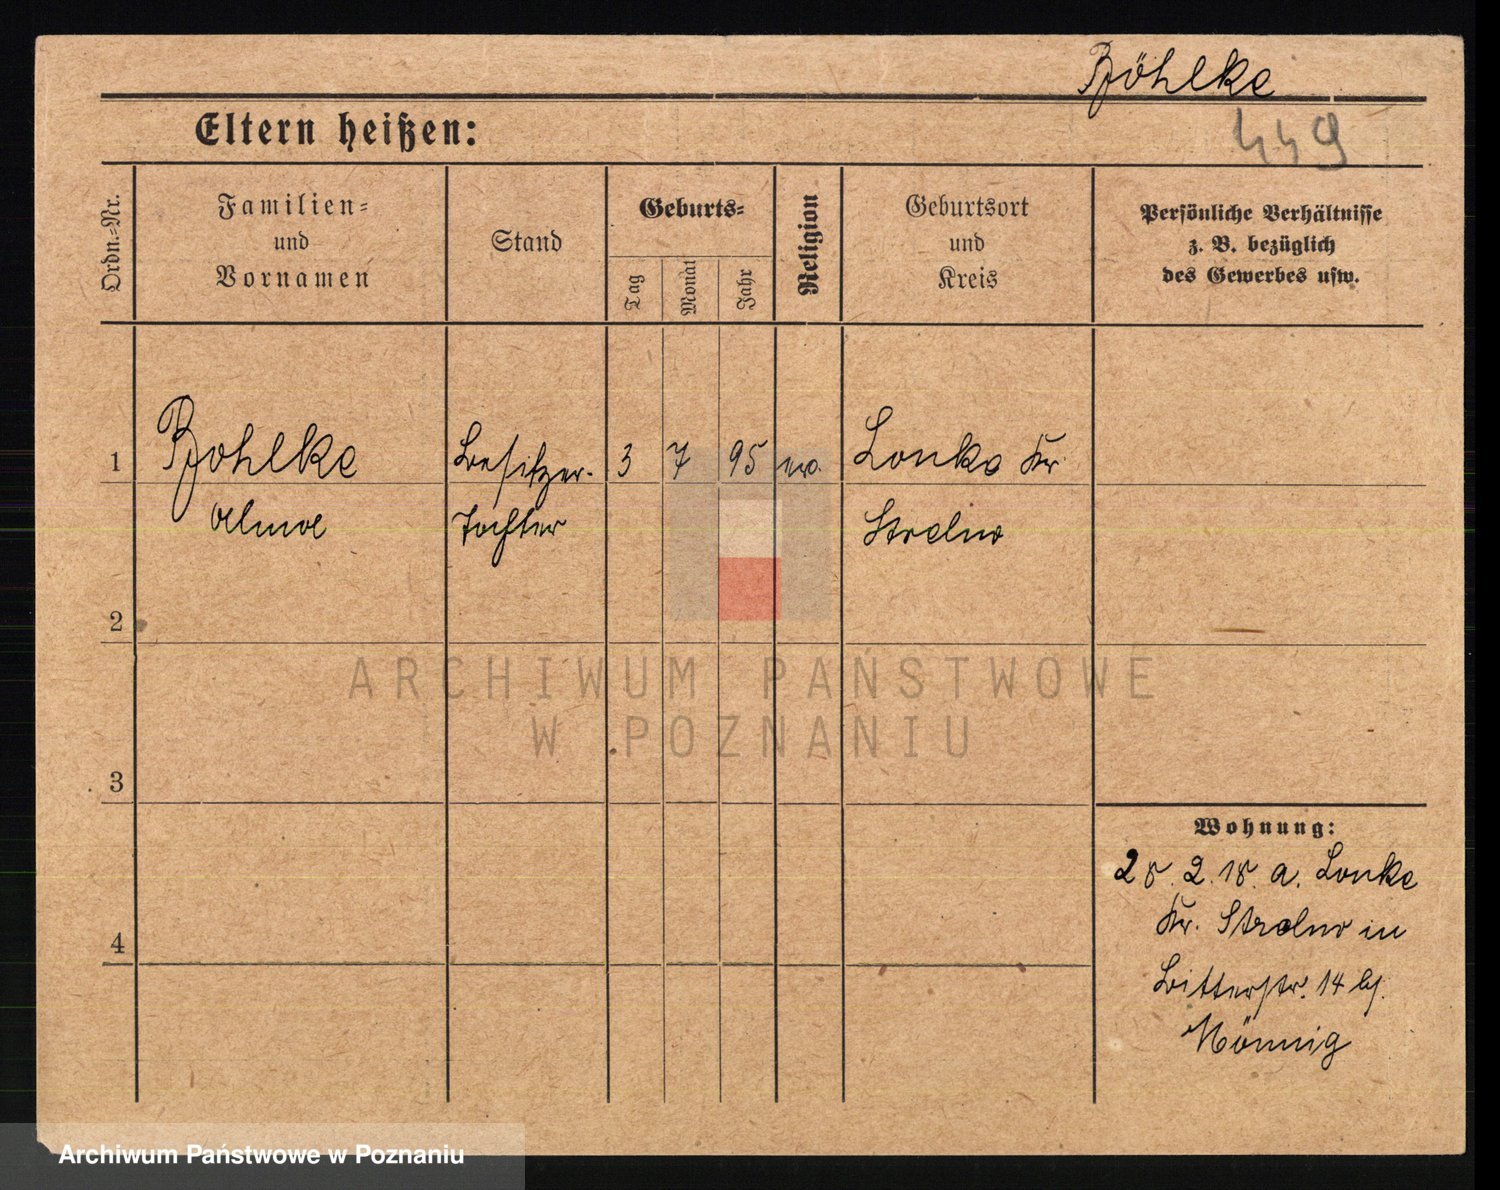 Böhlke
449
Eltern heißen:
Ordn.=Nr.
Familien=
und
Vornamen
Stand
Geburts=
Tag
Monat
Jahr
Religion
Geburtsort
und
Kreis
Persönliche Verhältnisse
z. B. bezüglich
des Gewerbes usw.
1
Bohlke
Alma
Besitzer-
tochter
3
7
95
ev.
Lonke Kr.
Strelno
2
3
4
ARCHIWUM PAŃSTWOWE
W POZNANIU
Wohnung:
28. 2. 18. a. Lonke
Kr. Strelno in
Bitterstr. 14 bj.
Mönnig
Archiwum Państwowe w Poznaniu